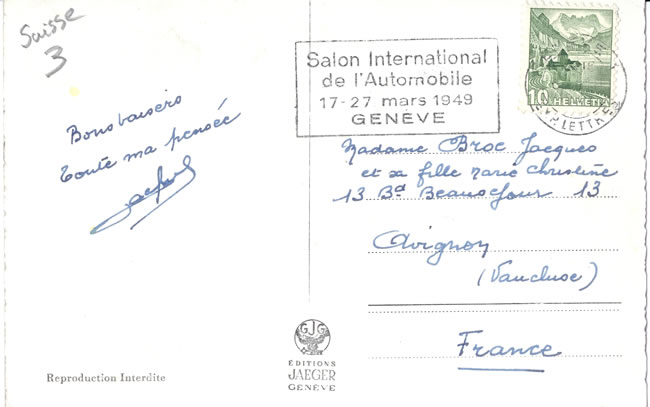 Suisse
3
Bons baisers
toute ma pensée
Jacques
Salon International
de l'Automobile
17-27 mars 1949
GENÈVE
10 HELVETIA
EXP. LETTRES
Madame Broc Jacques
et sa fille Marie Christine
13 Bd Beausejour 13
Avignon
(Vaucluse)
France
GJG
ÉDITIONS
JAEGER
GENÈVE
Reproduction Interdite